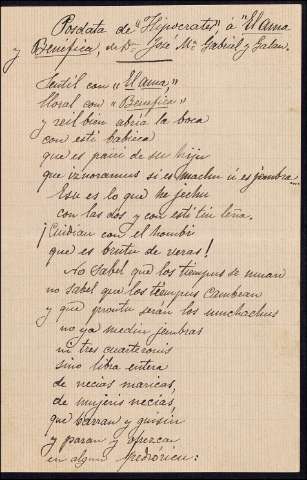 Posdata de "Hipocrates" á "El ama
y Benéfica, de Dn José Mª Gabriel y Galan.
Jentil con "El ama,"
lloral con "Benéfica"
y reil bien abria la boca
con esti babieca
que es pairi de su hiju
que iznoramus si es machu ú es jembra...
Esu es lo que he jechu
con las dos y con esti tiu
¡Cuidiau con el hombri
que es brutu de veras!
No sabel que los tiempus se muan
no sabel que los tiempus cambean
y que prontu seran los muchachus
no ya mediu jembras
ni tres cuarteronis
sino libra entera
de necias maricas,
de mujeris necias,
que barran y guisin
y paran y ofrezcan
en algun